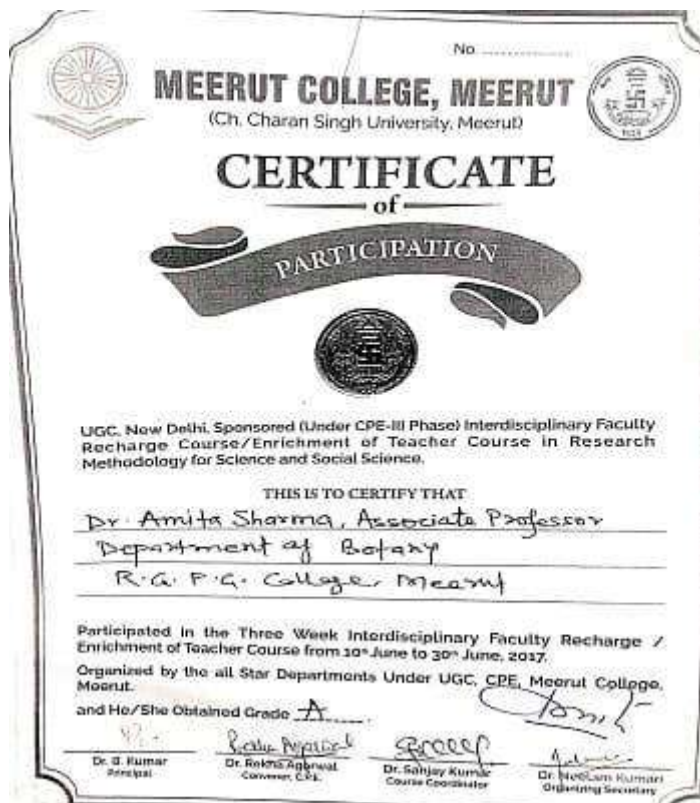 No ..................
MEERUT COLLEGE, MEERUT
(Ch. Charan Singh University, Meerut)
CERTIFICATE
of
PARTICIPATION
UGC, New Delhi, Sponsored (Under CPE-III Phase) Interdisciplinary Faculty
Recharge Course/Enrichment of Teacher Course in Research
Methodology for Science and Social Science.
THIS IS TO CERTIFY THAT
Dr. Amita Sharma, Associate Professor
Department of Botany
R.G. P.G. College, Meerut
Participated in the Three Week Interdisciplinary Faculty Recharge /
Enrichment of Teacher Course from 10th June to 30th June, 2017.
Organized by the all Star Departments Under UGC, CPE, Meerut College,
Meerut.
and He/She Obtained Grade A
Rekha Agarwal
Dr. B. Kumar
Principal
Dr. Rekha Agarwal
Convener, C.P.E.
Dr. Sanjay Kumar
Course Coordinator
Dr. Neelam Kumari
Organizing Secretary